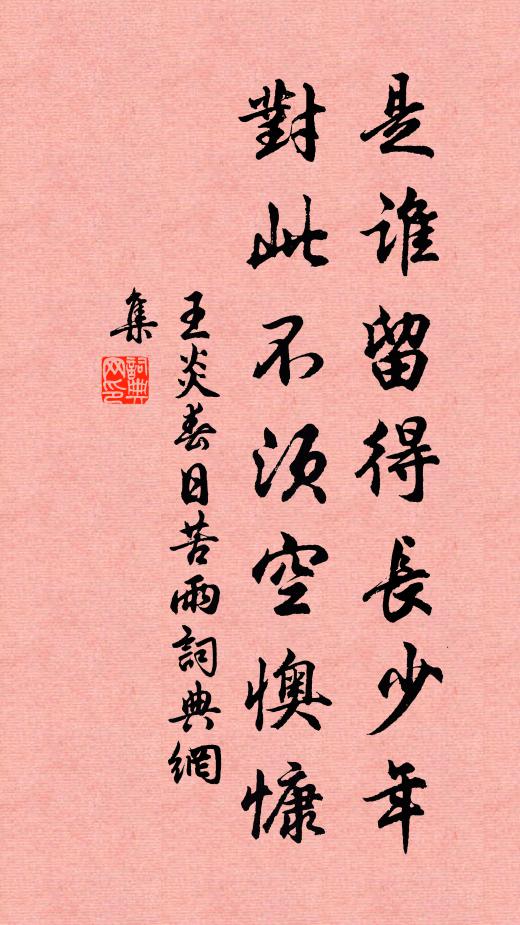 是誰留得長少年
對此不須空懊慷
王炎春日苦雨詞典網
集
詞典
网印